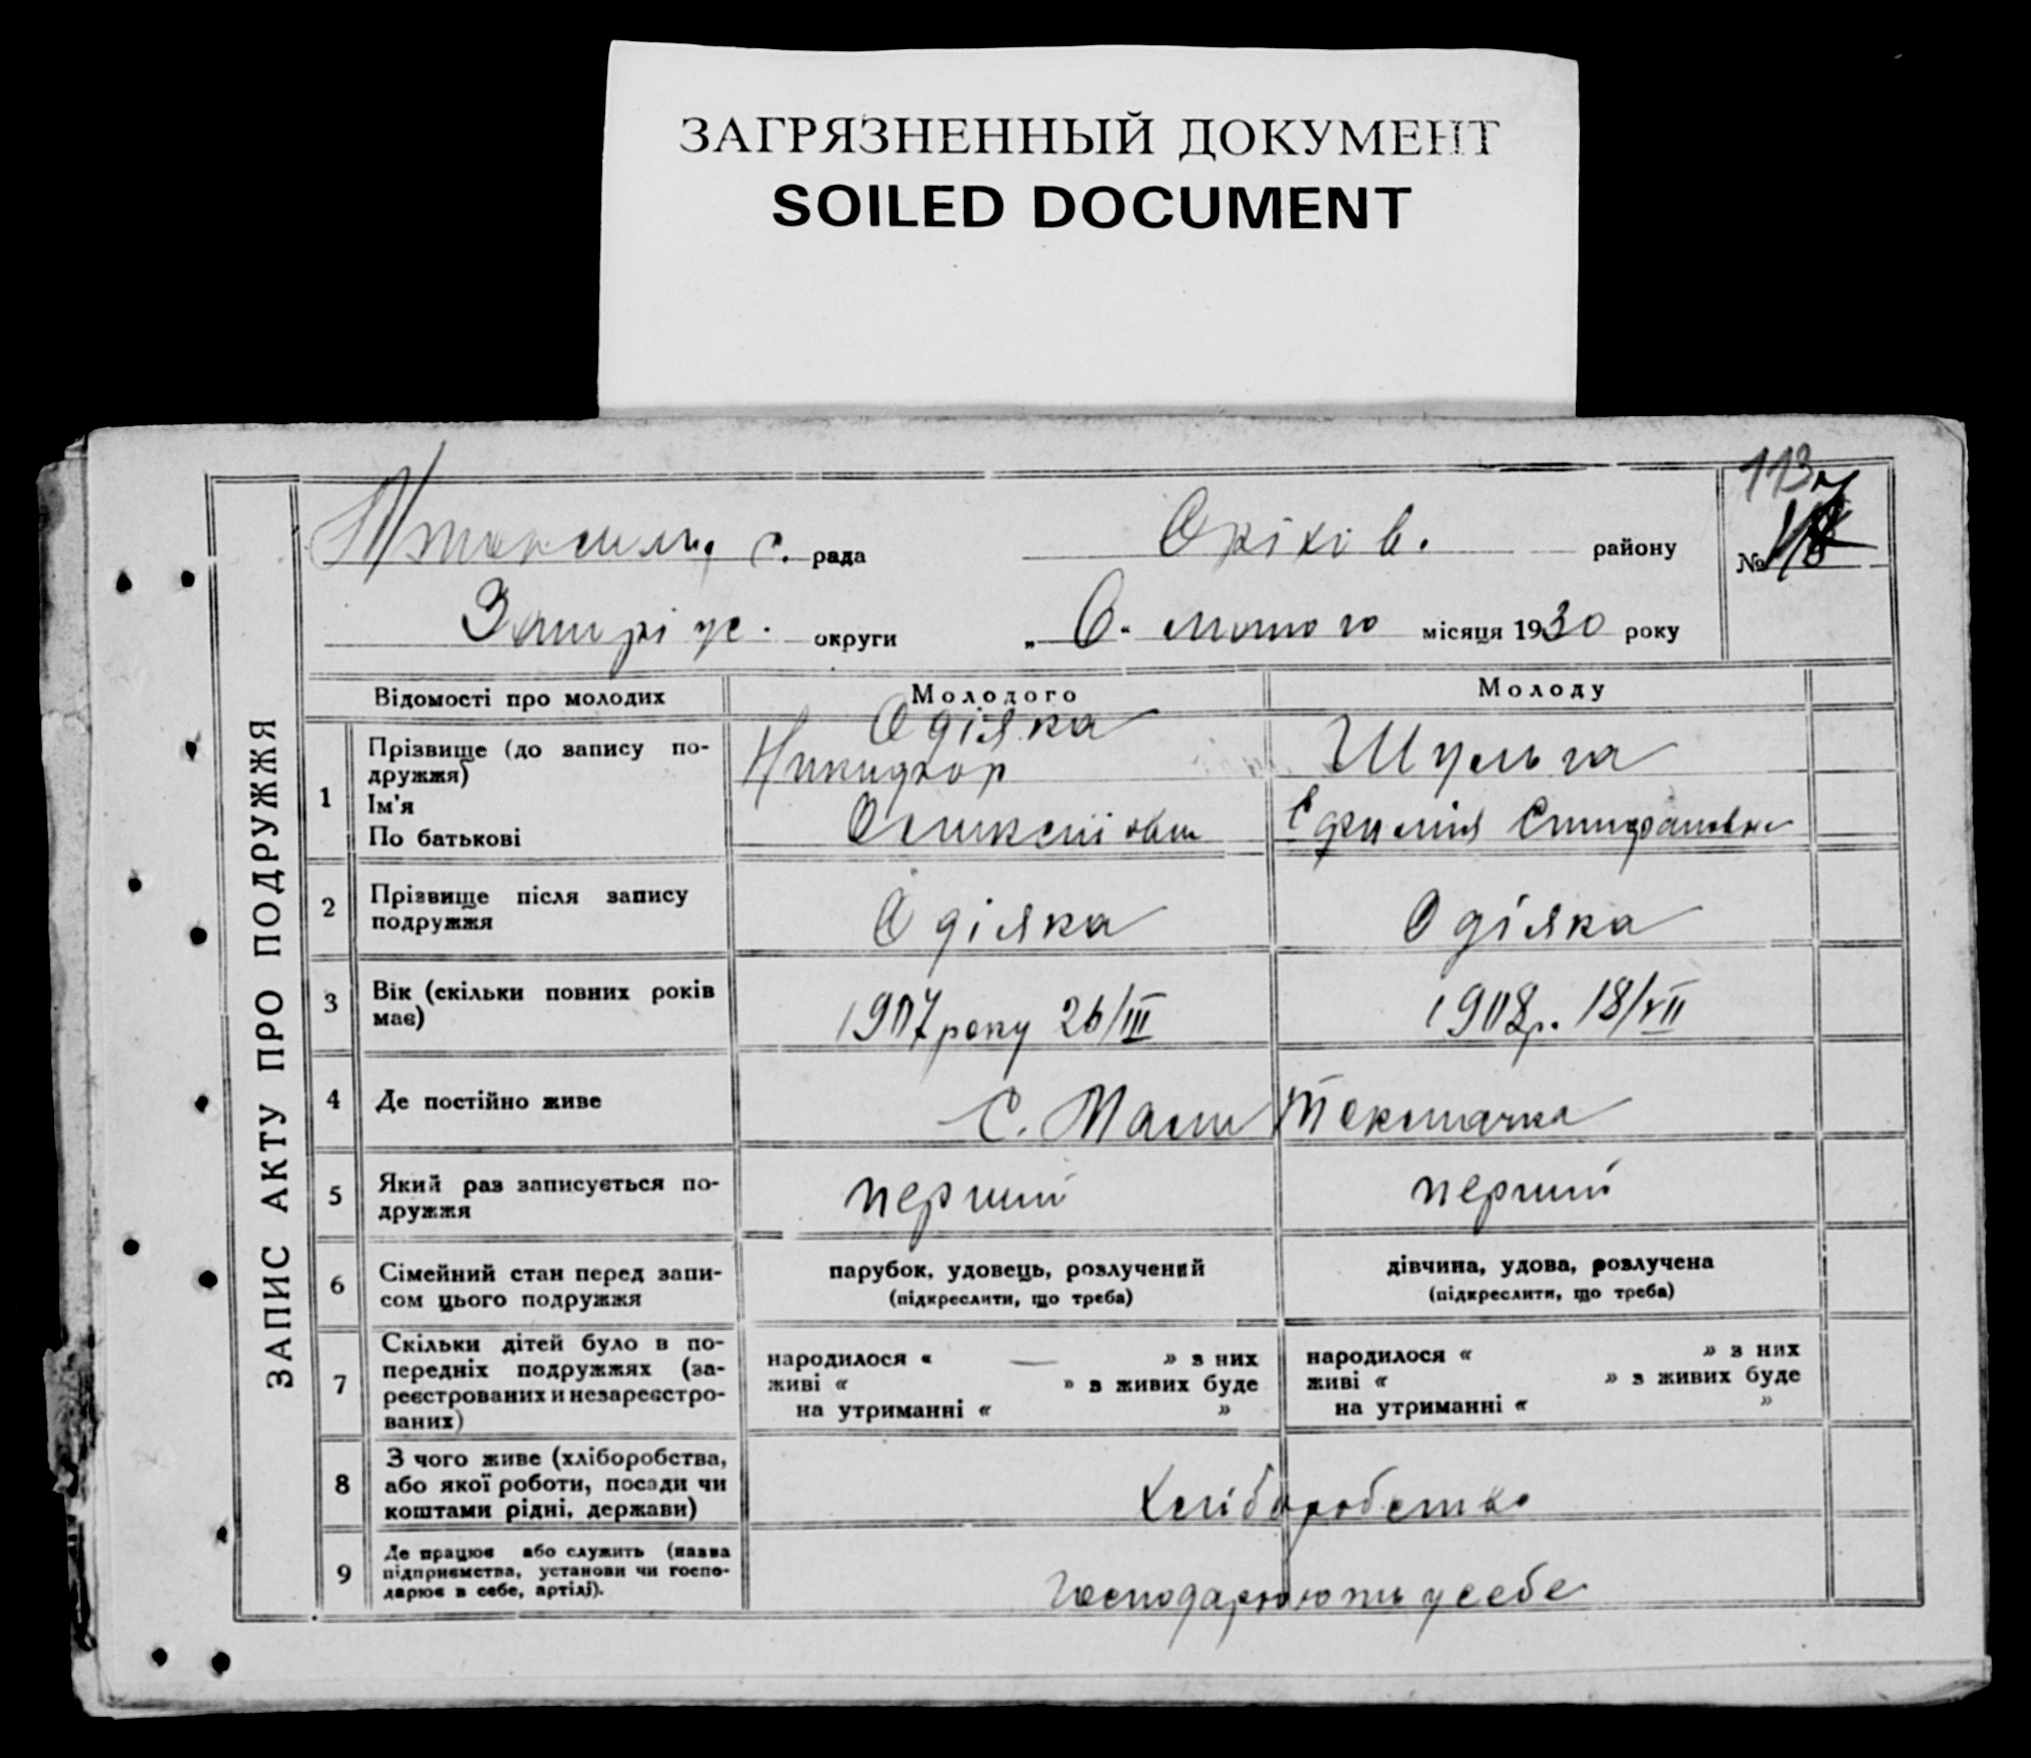 ЗАГРЯЗНЕННЫЙ ДОКУМЕНТ
SOILED DOCUMENT
113
с. рада Оріхів. району №
Запоріж. округи „ 6. лютого місяця 1930 року
ЗАПИС АКТУ ПРО ПОДРУЖЖЯ
Відомості про молодих Молодого Молоду
1 Прізвище (до запису по-
дружжя) Оділка Шульга
Ім'я Никифор
По батькові Олексійов
2 Прізвище після запису
подружжя Оділка Оділка
3 Вік (скільки повних років
має) 1907 року 26/III 1908 р. 18/VII
4 Де постійно живе С. Мала Токмачка
5 Який раз записується по-
дружжя перший перший
6 Сімейний стан перед запи-
сом цього подружжя
парубок, удовець, розлучений дівчина, удова, розлучена
(підкреслити, що треба) (підкреслити, що треба)
7 Скільки дітей було в по-
передніх подружжях (за-
реєстрованих и незареєстро-
ваних)
народилося « — » з них народилося « » з них
живі « » в живих буде живі « » з живих буде
на утриманні « » на утриманні « »
8 З чого живе (хліборобства,
або якої роботи, посади чи
коштами рідні, держави) Хліборобство
9 Де працює або служить (назва
підприємства, установи чи госпо-
дарює в себе, артілі). Господарюють у себе